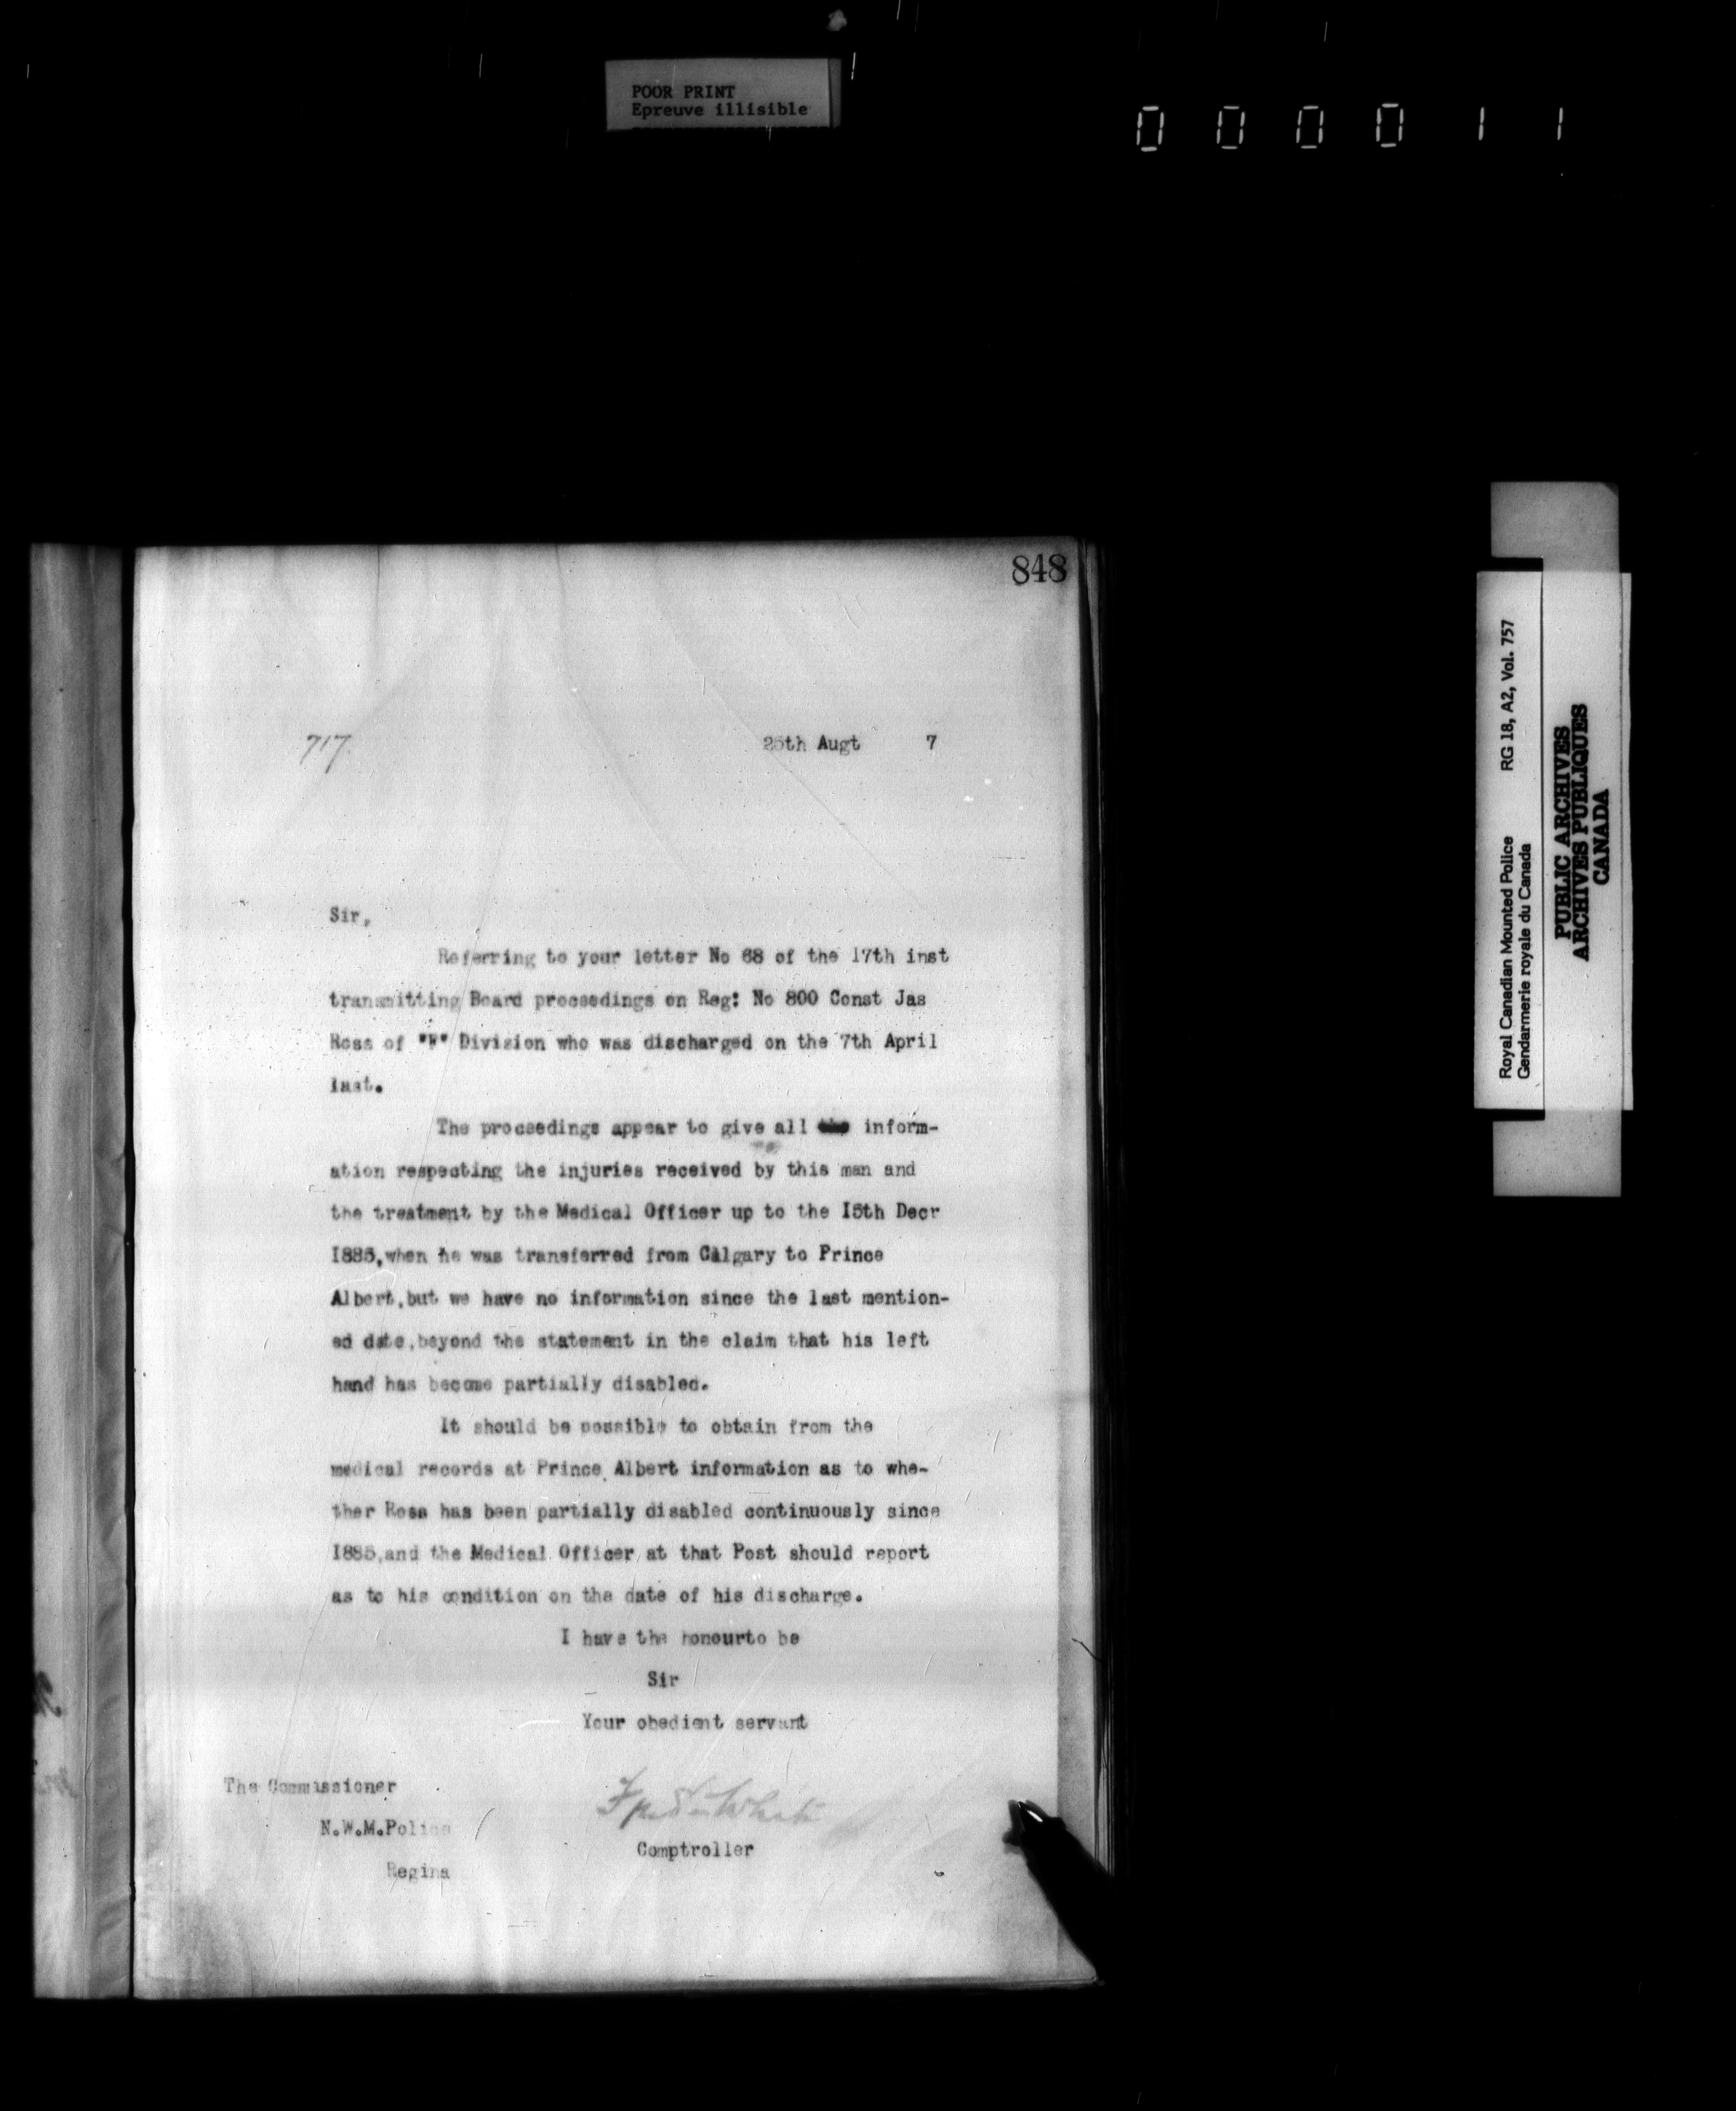 POOR PRINT
Epreuve illisible
000011
848
717
25th Augt 7
Sir,
Referring to your letter No 68 of the 17th inst
transmitting Board proceedings on Reg: No 800 Const Jas
Ross of "F" Division who was discharged on the 7th April
last.
The proceedings appear to give all the inform-
ation respecting the injuries received by this man and
the treatment by the Medical Officer up to the I5th Decr
I885,when he was transferred from Calgary to Prince
Albert,but we have no information since the last mention-
ed date,beyond the statement in the claim that his left
hand has become partially disabled.
It should be possible to obtain from the
medical records at Prince Albert information as to whe-
ther Ross has been partially disabled continuously since
I885,and the Medical Officer at that Post should report
as to his condition on the date of his discharge.
I have the honourto be
Sir
Your obedient servant
The Commissioner
N.W.M.Police
Regina
White
Comptroller
Royal Canadian Mounted Police RG 18, A2, Vol. 757
Gendarmerie royale du Canada
PUBLIC ARCHIVES
ARCHIVES PUBLIQUES
CANADA